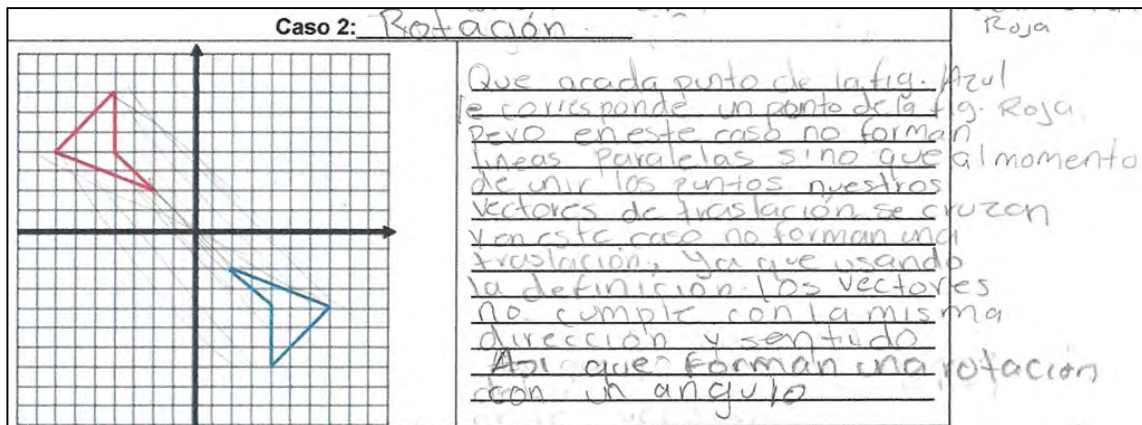 Caso 2: Rotación
Roja
Que acada punto de la fig. Azul
le corresponde un ponto de la fig. Roja.
pero en este caso no forman
lineas paralelas sino que al momento
de unir los puntos nuestros
vectores de traslación se cruzan
y en este caso no forman una
traslación, ya que usando
la definición los vectores
no cumple con la misma
dirección y sentido
Asi que forman una rotación
con un angulo